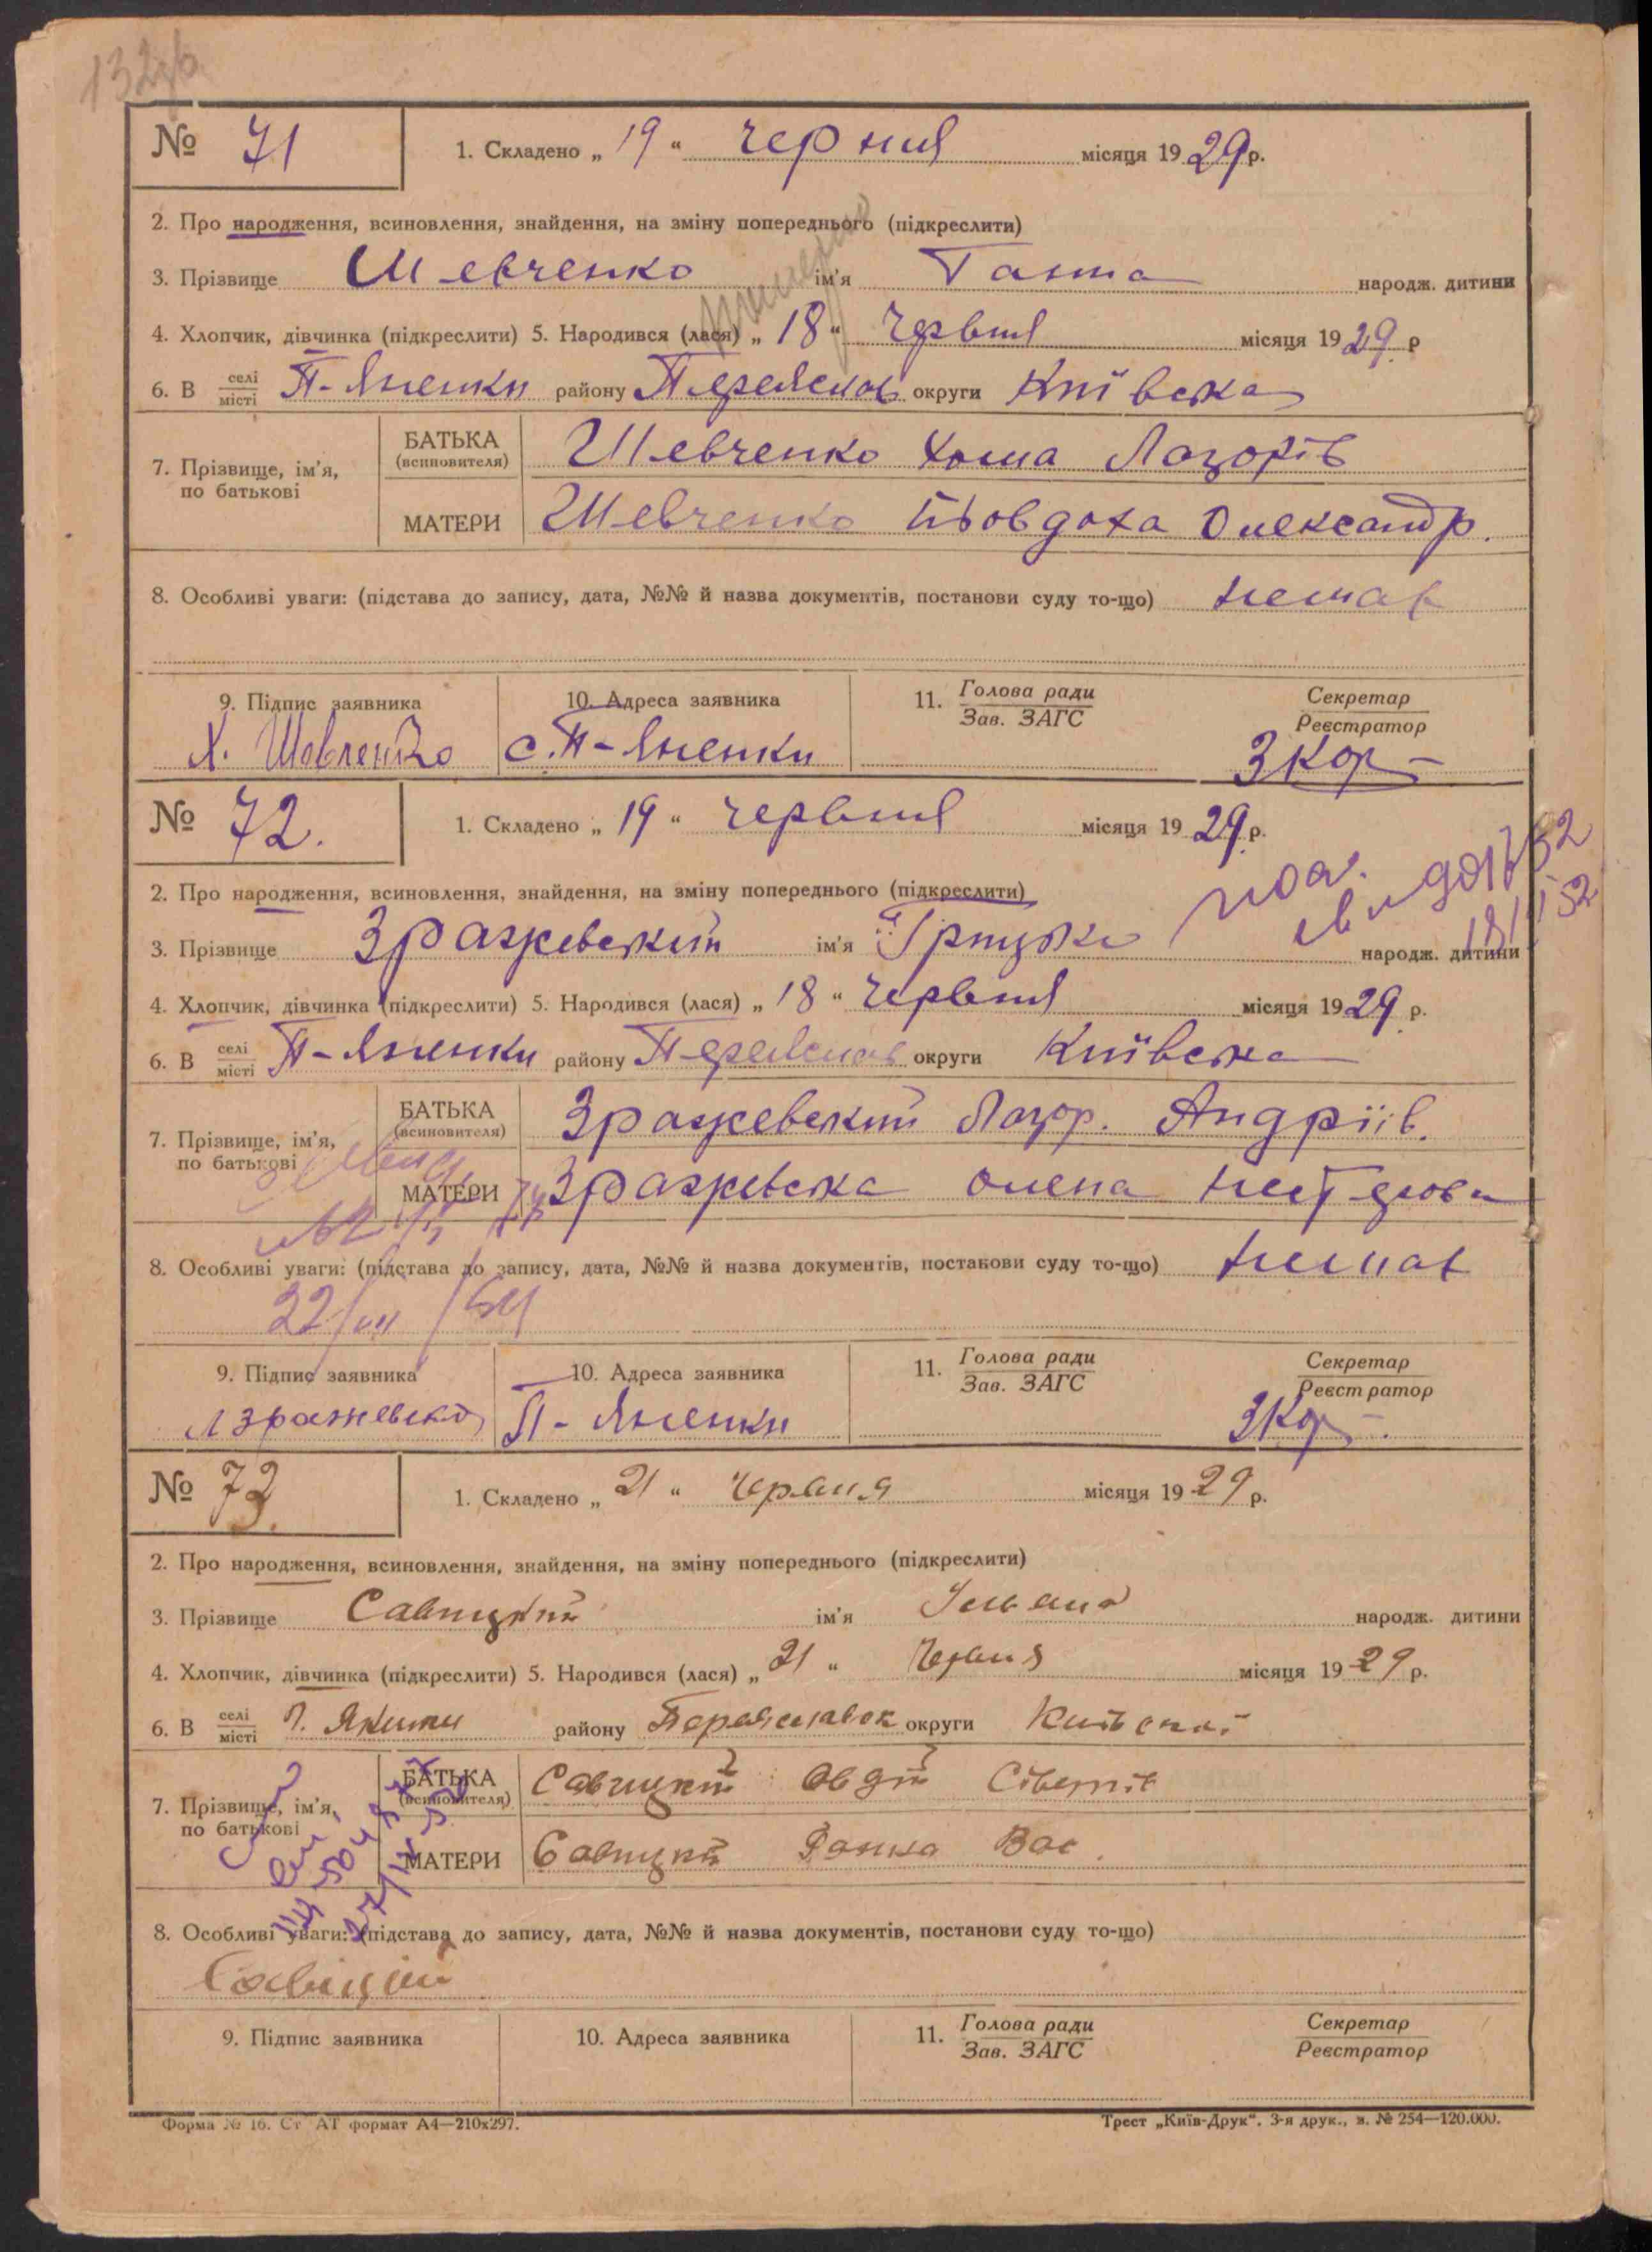 № 71
1. Складено „ 19 “ черния місяця 19 29 р.
2. Про народження, всиновлення, знайдення, на зміну попереднього (підкреслити)
3. Прізвище Шевченко ім'я Ганна народж. дитини
4. Хлопчик, дівчинка (підкреслити) 5. Народився (лася) „ 18 “ червня місяця 19 29 р
6. В селі місті П-Яненки району Переяслав округи Київська
7. Прізвище, ім'я, по батькові
БАТЬКА (всиновителя) Шевченко Хома Лазорів
МАТЕРИ Шевченко Йовдоха Олександр.
8. Особливі уваги: (підстава до запису, дата, №№ й назва документів, постанови суду то-що) немає
9. Підпис заявника 10. Адреса заявника 11. Голова ради Зав. ЗАГС Секретар Реєстратор
Х. Шевченко с. П-Яненки ЗКор
№ 72.
1. Складено „ 19 “ червня місяця 19 29 р.
2. Про народження, всиновлення, знайдення, на зміну попереднього (підкреслити)
3. Прізвище Зражевский ім'я Грицько народж. дитини
4. Хлопчик, дівчинка (підкреслити) 5. Народився (лася) „ 18 “ червня місяця 19 29 р.
6. В селі місті П-Яненки району Переяслав округи Київська
7. Прізвище, ім'я, по батькові
БАТЬКА (всиновителя) Зражевский Лазор. Андріїв.
МАТЕРИ Зражевська Олена
8. Особливі уваги: (підстава до запису, дата, №№ й назва документів, постанови суду то-що) немає
9. Підпис заявника 10. Адреса заявника 11. Голова ради Зав. ЗАГС Секретар Реєстратор
П-Яненки ЗКор
№ 73.
1. Складено „ 21 “ червня місяця 19 29 р.
2. Про народження, всиновлення, знайдення, на зміну попереднього (підкреслити)
3. Прізвище Савицкий ім'я народж. дитини
4. Хлопчик, дівчинка (підкреслити) 5. Народився (лася) „ 21 “ червня місяця 19 29 р.
6. В селі місті району округи
7. Прізвище, ім'я, по батькові
БАТЬКА (всиновителя) Савицкий Овдій
МАТЕРИ Савицкий Ганна Вас.
8. Особливі уваги: (підстава до запису, дата, №№ й назва документів, постанови суду то-що)
9. Підпис заявника 10. Адреса заявника 11. Голова ради Зав. ЗАГС Секретар Реєстратор
Форма № 16. Ст АТ формат А4—210х297. Трест „Київ-Друк“. 3-я друк., з. № 254—120.000.